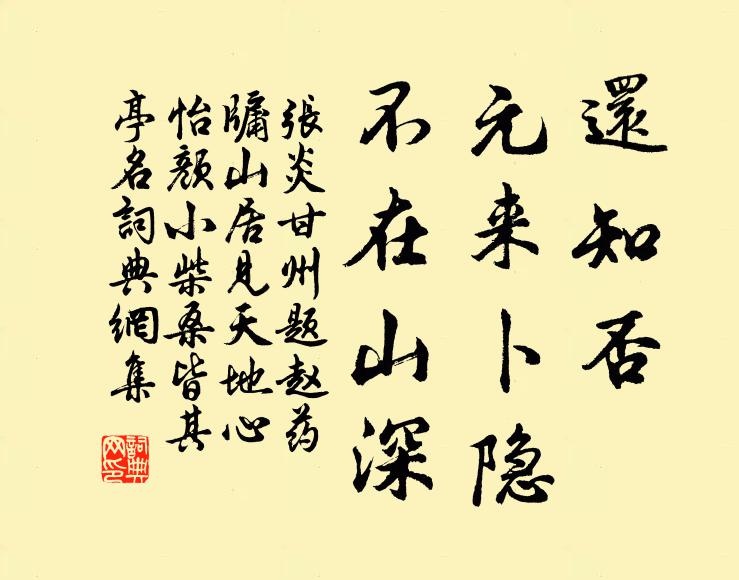 還知否
元来卜隐
不在山深
張炎甘州题赵药
牖山居見天地心
怡顏小柴桑皆其
亭名詞典網集
詞典网印